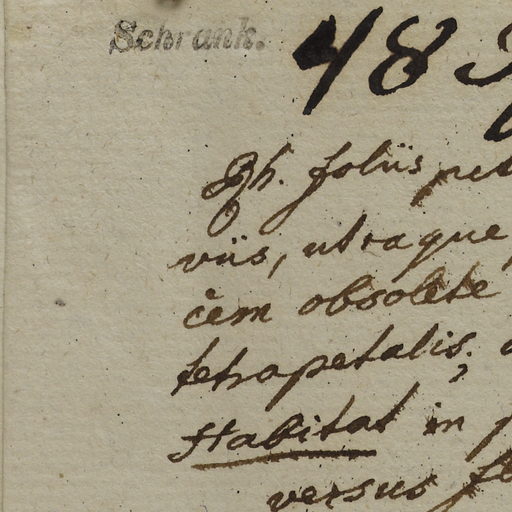 Schrank.
48
Rh. foliis pet
viis, utraque
cem obsolete
tetrapetalis;
Habitat in p
versus fo